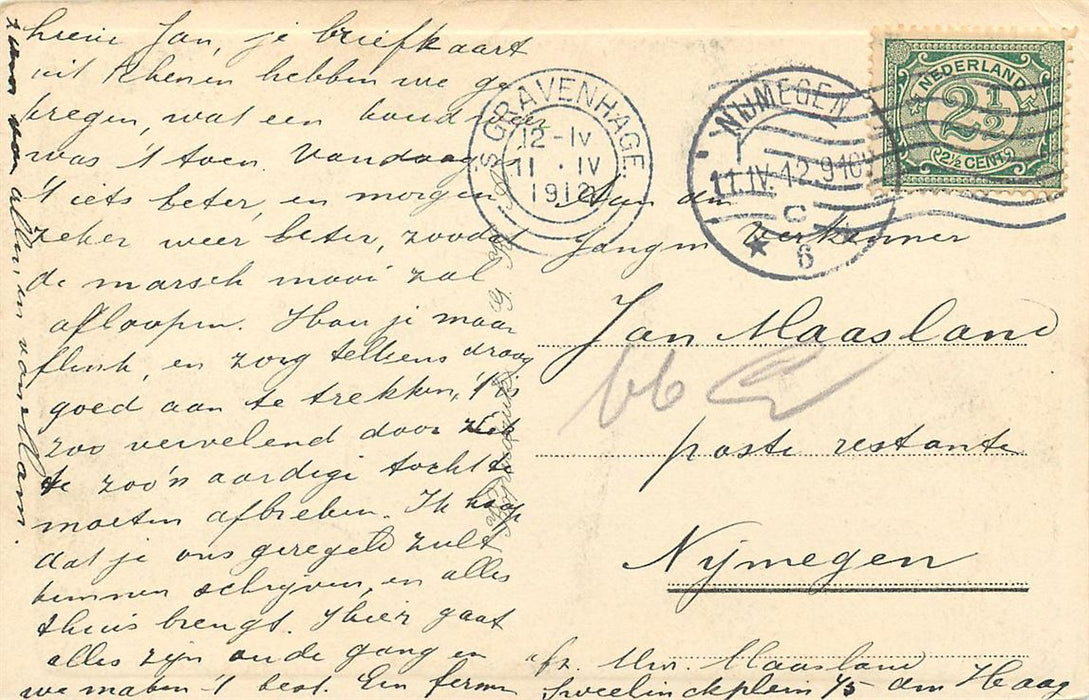 Lieve Jan, je briefkaart
uit Rhenen hebben we ge
kregen, wat een
was 't toen. Vandaag is
't iets beter, en morgen
zeker weer beter, zoodat
de marsch mooi zal
afloopen. Hou je maar
flink, en zorg telkens droog
goed aan te trekken, 't is
zoo vervelend door ziek
te zoo'n aardige tocht te
moeten afbreken. Ik hoop
dat je ons geregeld zult
kunnen schrijven, en alles
thuis brengt. Hier gaat
alles zijn oude gang en
we maken 't best. Een ferme
zoen van allen, en van Mam.
'S GRAVENHAGE.
12-IV
11 · IV
1912
NIJMEGEN
11.IV.12.9-10V
C
6
NEDERLAND
2½ Ct
2½ CENT
Aan den
Jongen Verkenner
Jan Maasland
poste restante
Nijmegen
afz. Mevr. Maasland
Sweelinckplein 45 den Haag